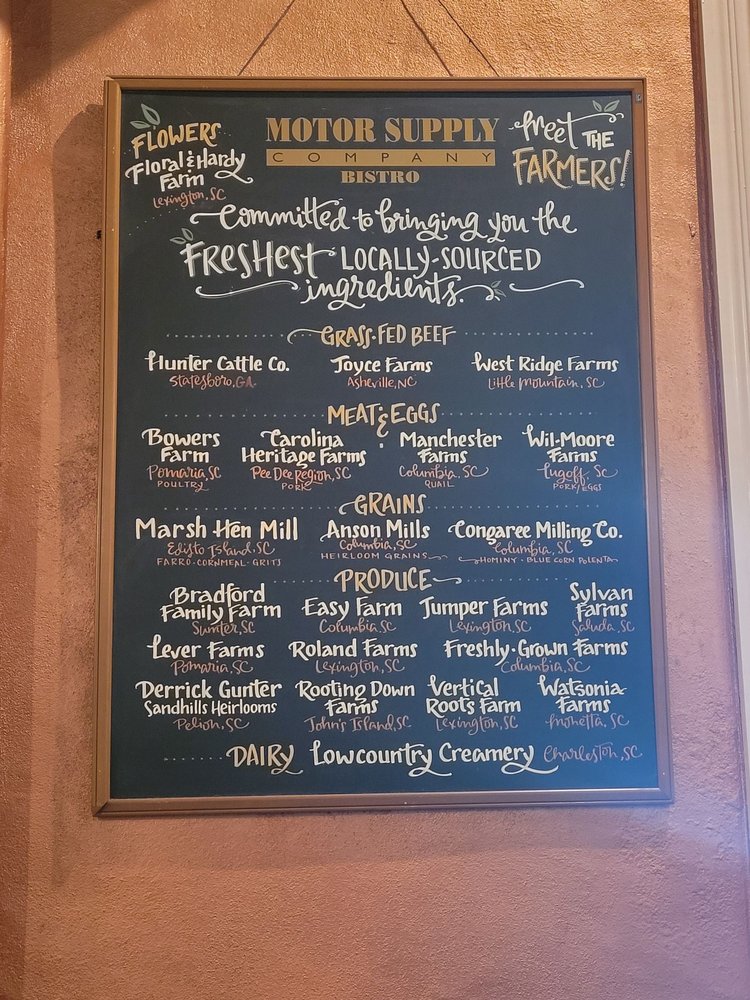 FLOWERS
Floral & Hardy
Farm
Lexington, SC
MOTOR SUPPLY
COMPANY
BISTRO
Meet THE
FARMERS!
Committed to bringing you the
FRESHEST LOCALLY-SOURCED
ingredients.
GRASS-FED BEEF
Hunter Cattle Co.
Statesboro, GA
Joyce Farms
Asheville, NC
West Ridge Farms
Little Mountain, SC
MEAT & EGGS
Bowers
Farm
Pomaria, SC
POULTRY
Carolina
Heritage Farms
Pee Dee Region, SC
PORK
Manchester
Farms
Columbia, SC
QUAIL
Wil-Moore
Farms
Lugoff, SC
PORK/EGGS
GRAINS
Marsh Hen Mill
Edisto Island, SC
FARRO · CORNMEAL · GRITS
Anson Mills
Columbia, SC
HEIRLOOM GRAINS
Congaree Milling Co.
Columbia, SC
HOMINY · BLUE CORN POLENTA
PRODUCE
Bradford
Family Farm
Sumter, SC
Easy Farm
Columbia, SC
Jumper Farms
Lexington, SC
Sylvan
Farms
Saluda, SC
Lever Farms
Pomaria, SC
Roland Farms
Lexington, SC
Freshly-Grown Farms
Columbia, SC
Derrick Gunter
Sandhills Heirlooms
Pelion, SC
Rooting Down
Farms
John's Island, SC
Vertical
Roots Farm
Lexington, SC
Watsonia
Farms
Monetta, SC
DAIRY Lowcountry Creamery Charleston, SC